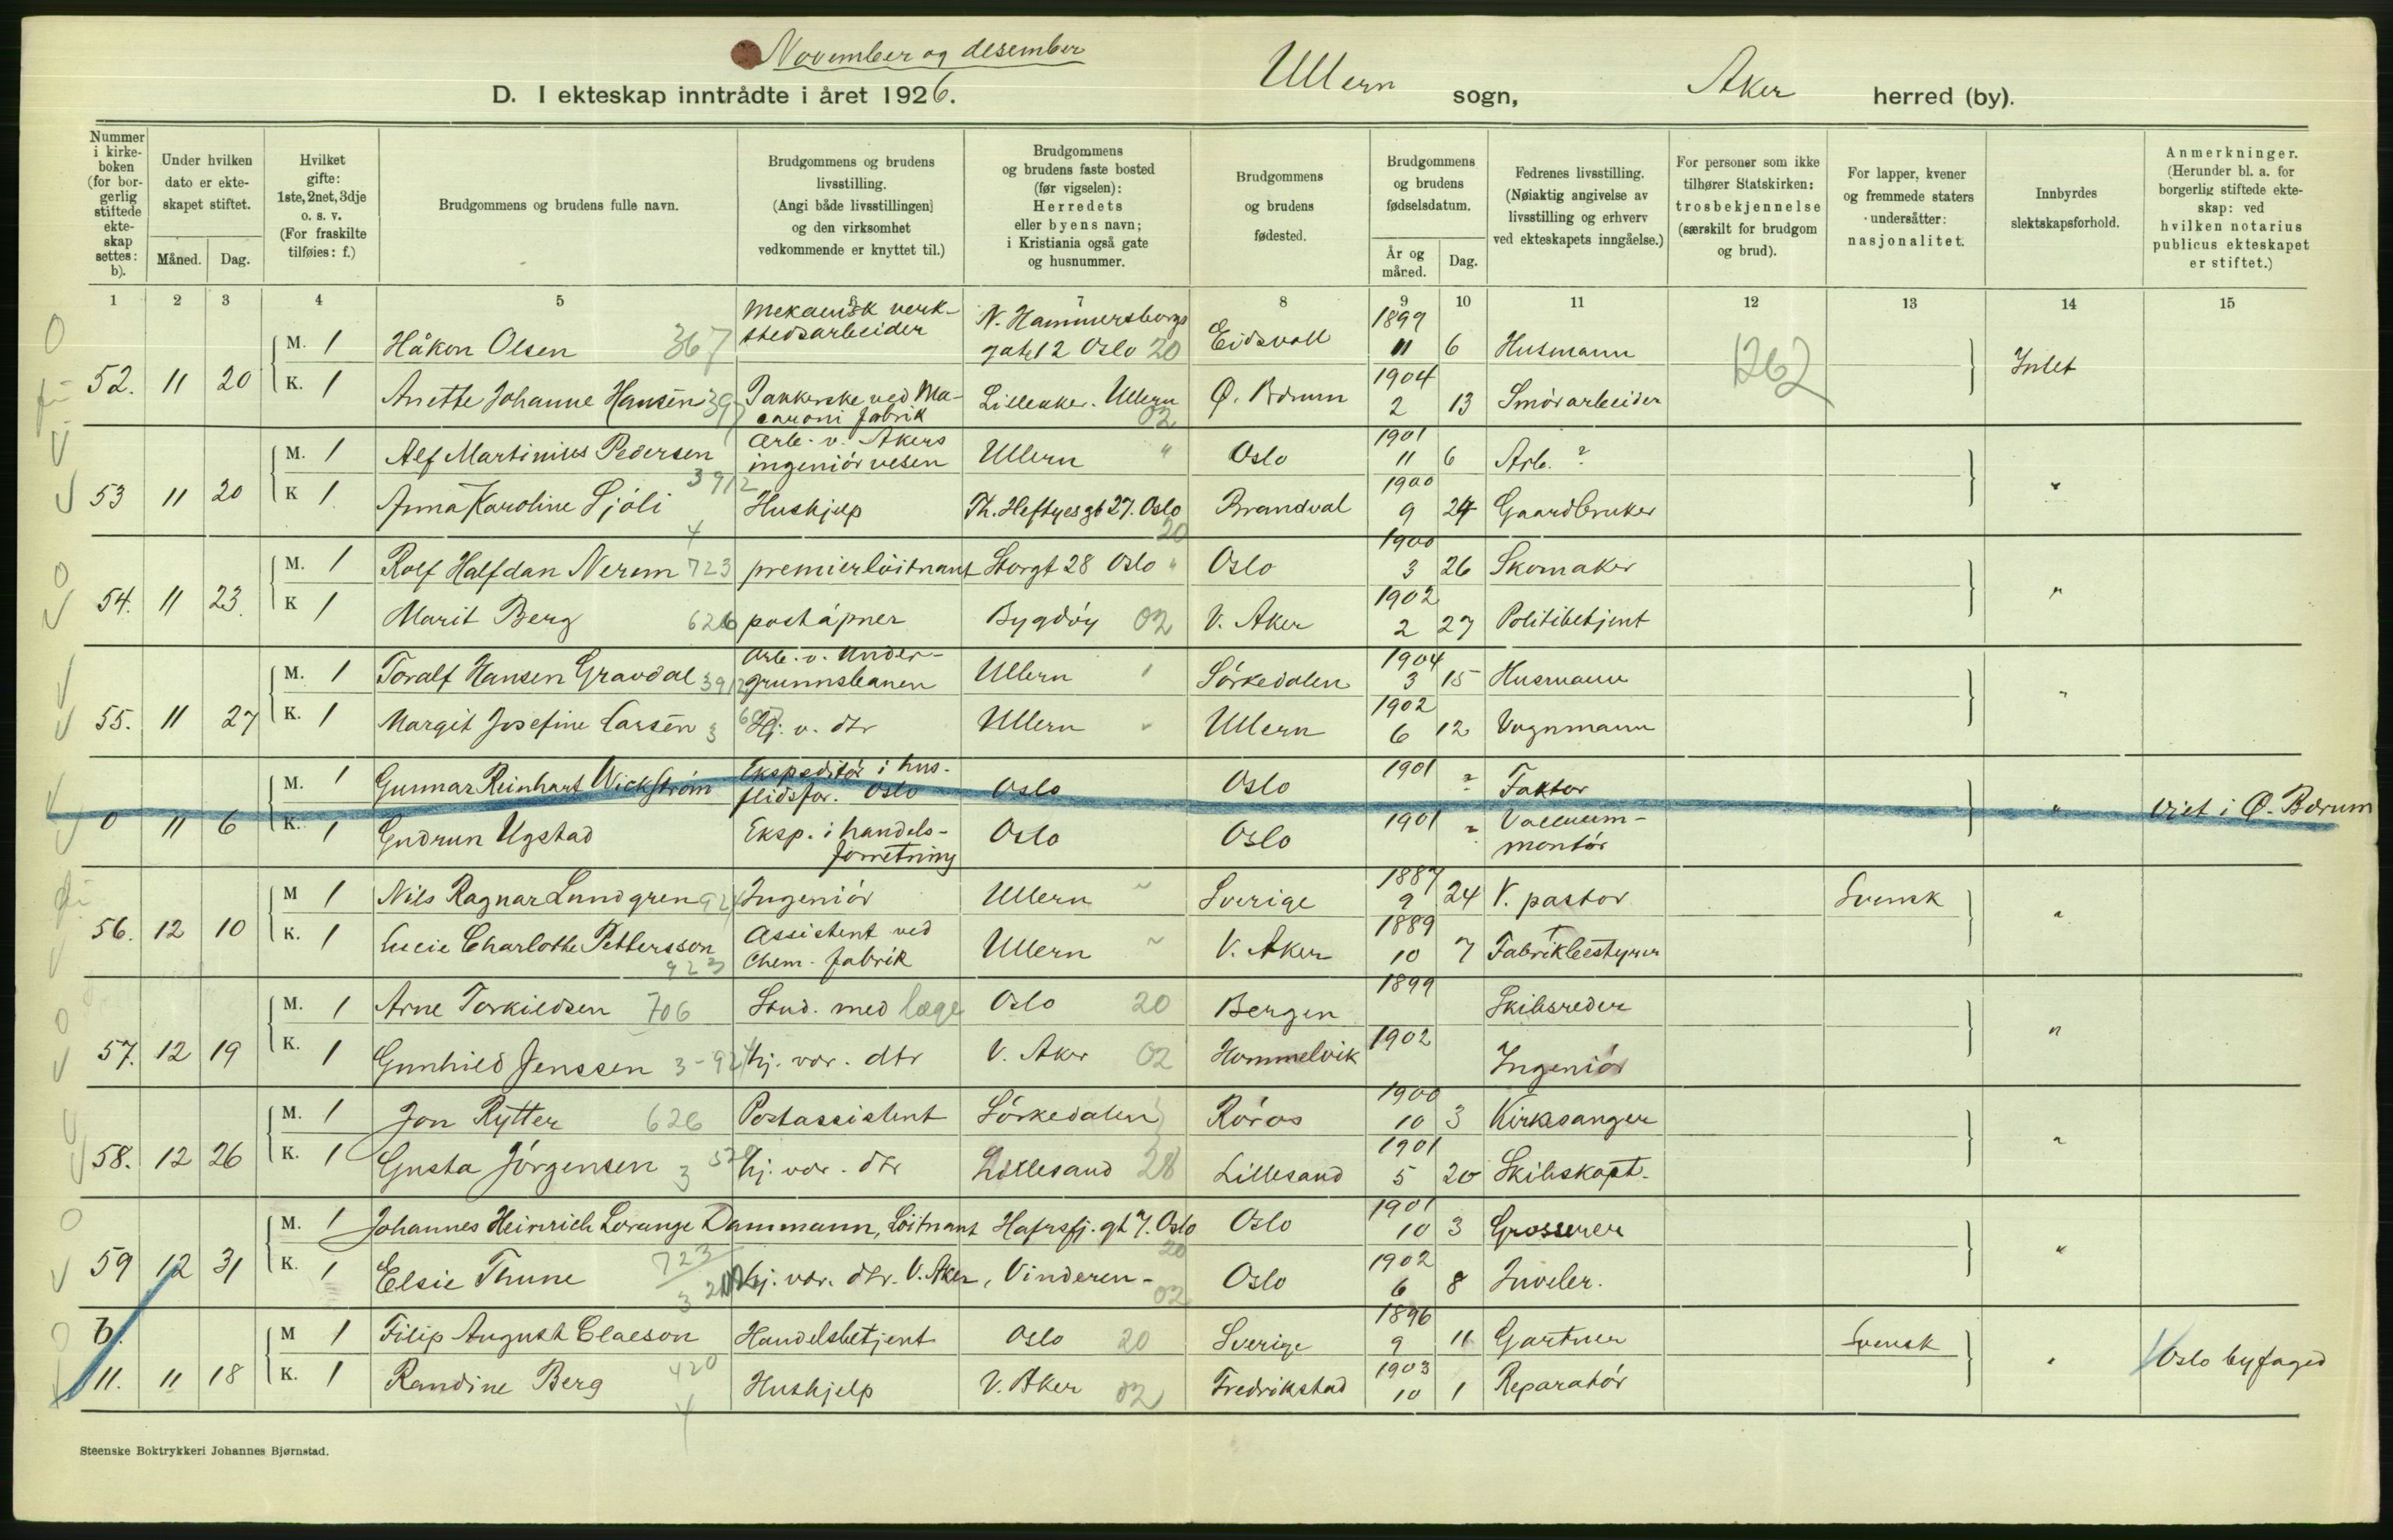 November og desember
D. I ekteskap inntrådte i året 1926. Ullern sogn, Aker herred (by).
Nummer i kirkeboken (for borgerlig stiftede ekteskap settes: b).
Under hvilken dato er ekteskapet stiftet.
Måned. Dag.
Hvilket gifte: 1ste, 2net, 3dje o. s. v. (For fraskilte tilføies: f.)
Brudgommens og brudens fulle navn.
Brudgommens og brudens livsstilling. (Angi både livsstillingen) og den virksomhet vedkommende er knyttet til.)
Brudgommens og brudens faste bosted (før vigselen): Herredets eller byens navn; i Kristiania også gate og husnummer.
Brudgommens og brudens fødested.
Brudgommens og brudens fødselsdatum.
År og måned. Dag.
Fedrenes livsstilling. (Nøiaktig angivelse av livsstilling og erhverv ved ekteskapets inngåelse.)
For personer som ikke tilhører Statskirken: trosbekjennelse (særskilt for brudgom og brud).
For lapper, kvener og fremmede staters undersåtter: nasjonalitet.
Innbyrdes slektskapsforhold.
Anmerkninger. (Herunder bl. a. for borgerlig stiftede ekteskap: ved hvilken notarius publicus ekteskapet er stiftet.)
1 2 3 4 5 6 7 8 9 10 11 12 13 14 15
M. 1 Håkon Olsen 367 Mekanisk verkstedsarbeider N. Hammersborgs gate 12 Oslo 20 Eidsvoll 1899 11 6 Husmann 1262
52. 11 20 K. 1 Anette Johanne Hansen Pakkerske ved Macaroni fabrik Lilleaker. Ullern 02 Ø. Bærum 1904 2 13 Smörarbeider Intet
M. 1 Alf Martinius Pedersen Arb. v. Akers ingeniörvesen Ullern " Oslo 1901 11 6 Arb. ?
53 11 20 K 1 Anna Karoline Sjöli 3912 4 Hushjelp Th. Heftyesgt 27. Oslo 20 Brandval 1900 9 24 Gaardbruker "
M. 1 Rolf Halfdan Nerem 723 premierlöitnant Storgt 28 Oslo " Oslo 1900 3 26 Skomaker
54. 11 23. K 1 Marit Berg 626 poståpner Bygdöy 02 V. Aker 1902 2 27 Politibetjent "
M. 1 Toralf Hansen Gravdal 3912 Arb. v. Undergrunnsbanen Ullern Sörkedalen 1904 3 15 Husmann
55. 11 27 K. 1 Margit Josefine Larsen 3 Hj. v. dtr Ullern Ullern 1902 6 12 Vognmann "
M. 1 Gunnar Reinhart Wickström Ekspeditör i husflidsfor. Oslo Oslo Oslo 1901 ? Faktor
0 11 6 K. 1 Gudrun Ugstad Eksp. i handelsforretning Oslo Oslo 1901 ? Vacuummontör " Viet i Ø. Bærum
M 1 Nils Ragnar Lundgren Ingeniör Ullern Sverige 1887 9 24 V. pastor Svensk
56. 12 10 K. 1 Lucie Charlotte Pettersson 923 Assistent ved Chem. fabrik Ullern V. Aker 1889 10 7 Fabrikbestyrer "
M. 1 Arne Torkildsen 706 Stud. med læge Oslo 20 Bergen 1899 Skibsreder
57. 12 19 K. 1 Gunhild Jenssen 3-924 hj. vær. dtr V. Aker 02 Hommelvik 1902 Ingeniör "
M. 1 Jon Rytter 626 Postassistent Sörkedalen Röros 1900 10 3 Kirkesanger
58. 12 26 K. 1 Gusta Jörgensen 3 hj. vær. dtr Lillesand 28 Lillesand 1901 5 20 Skibskapt. "
M. 1 Johannes Heinrich Lorange Dammann, Löitnant Hafrsfj. gt 7. Oslo 20 Oslo 1901 10 3 Grosserer
59 12 31 K. 1 Elsie Thune 723 3 hj. vær. dtr. V. Aker, Vinderen - 02 Oslo 1902 6 8 Juveler. "
b. M 1 Filip August Claeson Handelsbetjent Oslo 20 Sverige 1896 9 11 Gartner Svensk
11. 11 18 K. 1 Randine Berg 420 4 Hushjelp V. Aker 02 Fredrikstad 1903 10 1 Reparatör " Oslo byfoged
Steenske Boktrykkeri Johannes Bjørnstad.